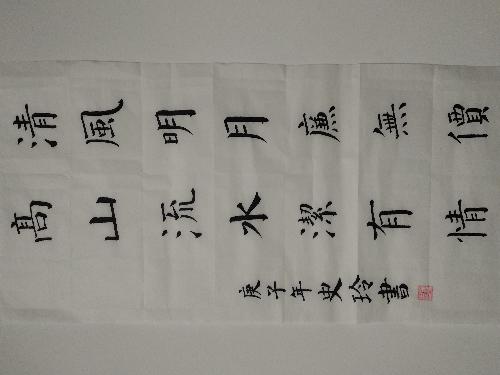 清風明月廉無價
高山流水潔有情
庚子年史玲書